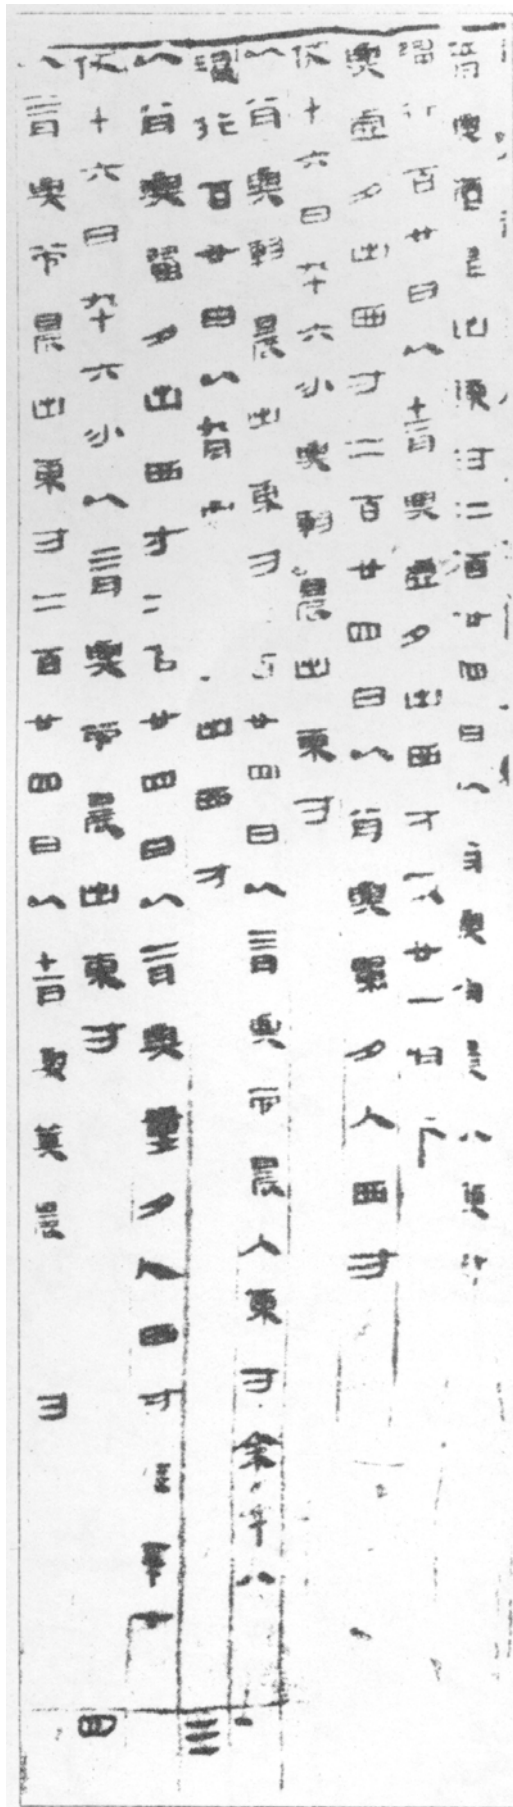 正月與營室晨出東方二百廿四日以八月與角晨入東方
浸行百廿日以十二月與虛夕出西方取廿一於下
與虛夕出西方二百廿四日以八月與翼夕入西方
伏十六日九十六分與軫晨出東方
以八月與軫晨出東方二百廿四日以三月與茅晨入東方餘七十八
浸行百廿日以九月與 出西方
三
以八月與翼夕出西方二百廿四日以二月與婁夕入西方
伏十六日九十六分以三月與茅晨出東方
四
以三月與茅晨出東方二百廿四日以十一月與箕晨 方